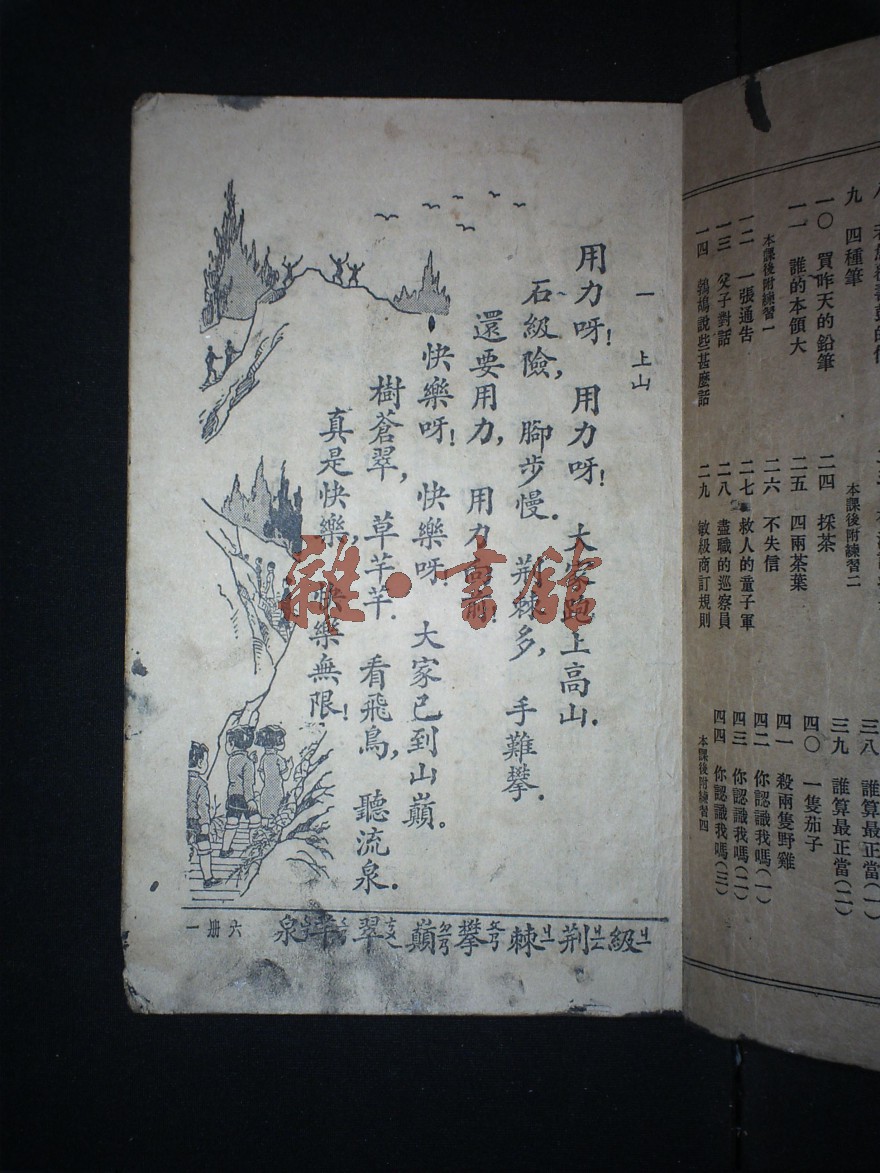 九　四種筆
一〇　買昨天的鉛筆
一一　誰的本領大
本課後附練習一
一二　一張通告
一三　父子對話
一四　鷯鴣說些甚麼話
本課後附練習二
二四　採茶
二五　四兩茶葉
二六　不失信
二七　救人的童子軍
二八　盡職的巡察員
二九　敏級商訂規則
三八　誰算最正當（一）
三九　誰算最正當（二）
四〇　一隻茄子
四一　殺兩隻野雞
四二　你認識我嗎（一）
四三　你認識我嗎（二）
四四　你認識我嗎（三）
本課後附練習四
一　上山
用力呀！用力呀！大家跑上高山.
石級險，腳步慢.荆棘多，手難攀.
還要用力，用力向前！
快樂呀！快樂呀！大家已到山巔。
樹蒼翠，草芊芊.看飛鳥，聽流泉.
真是快樂，快樂無限！
級 荆 棘 攀 巔 翠 芊 泉
六冊　一
雜·書館